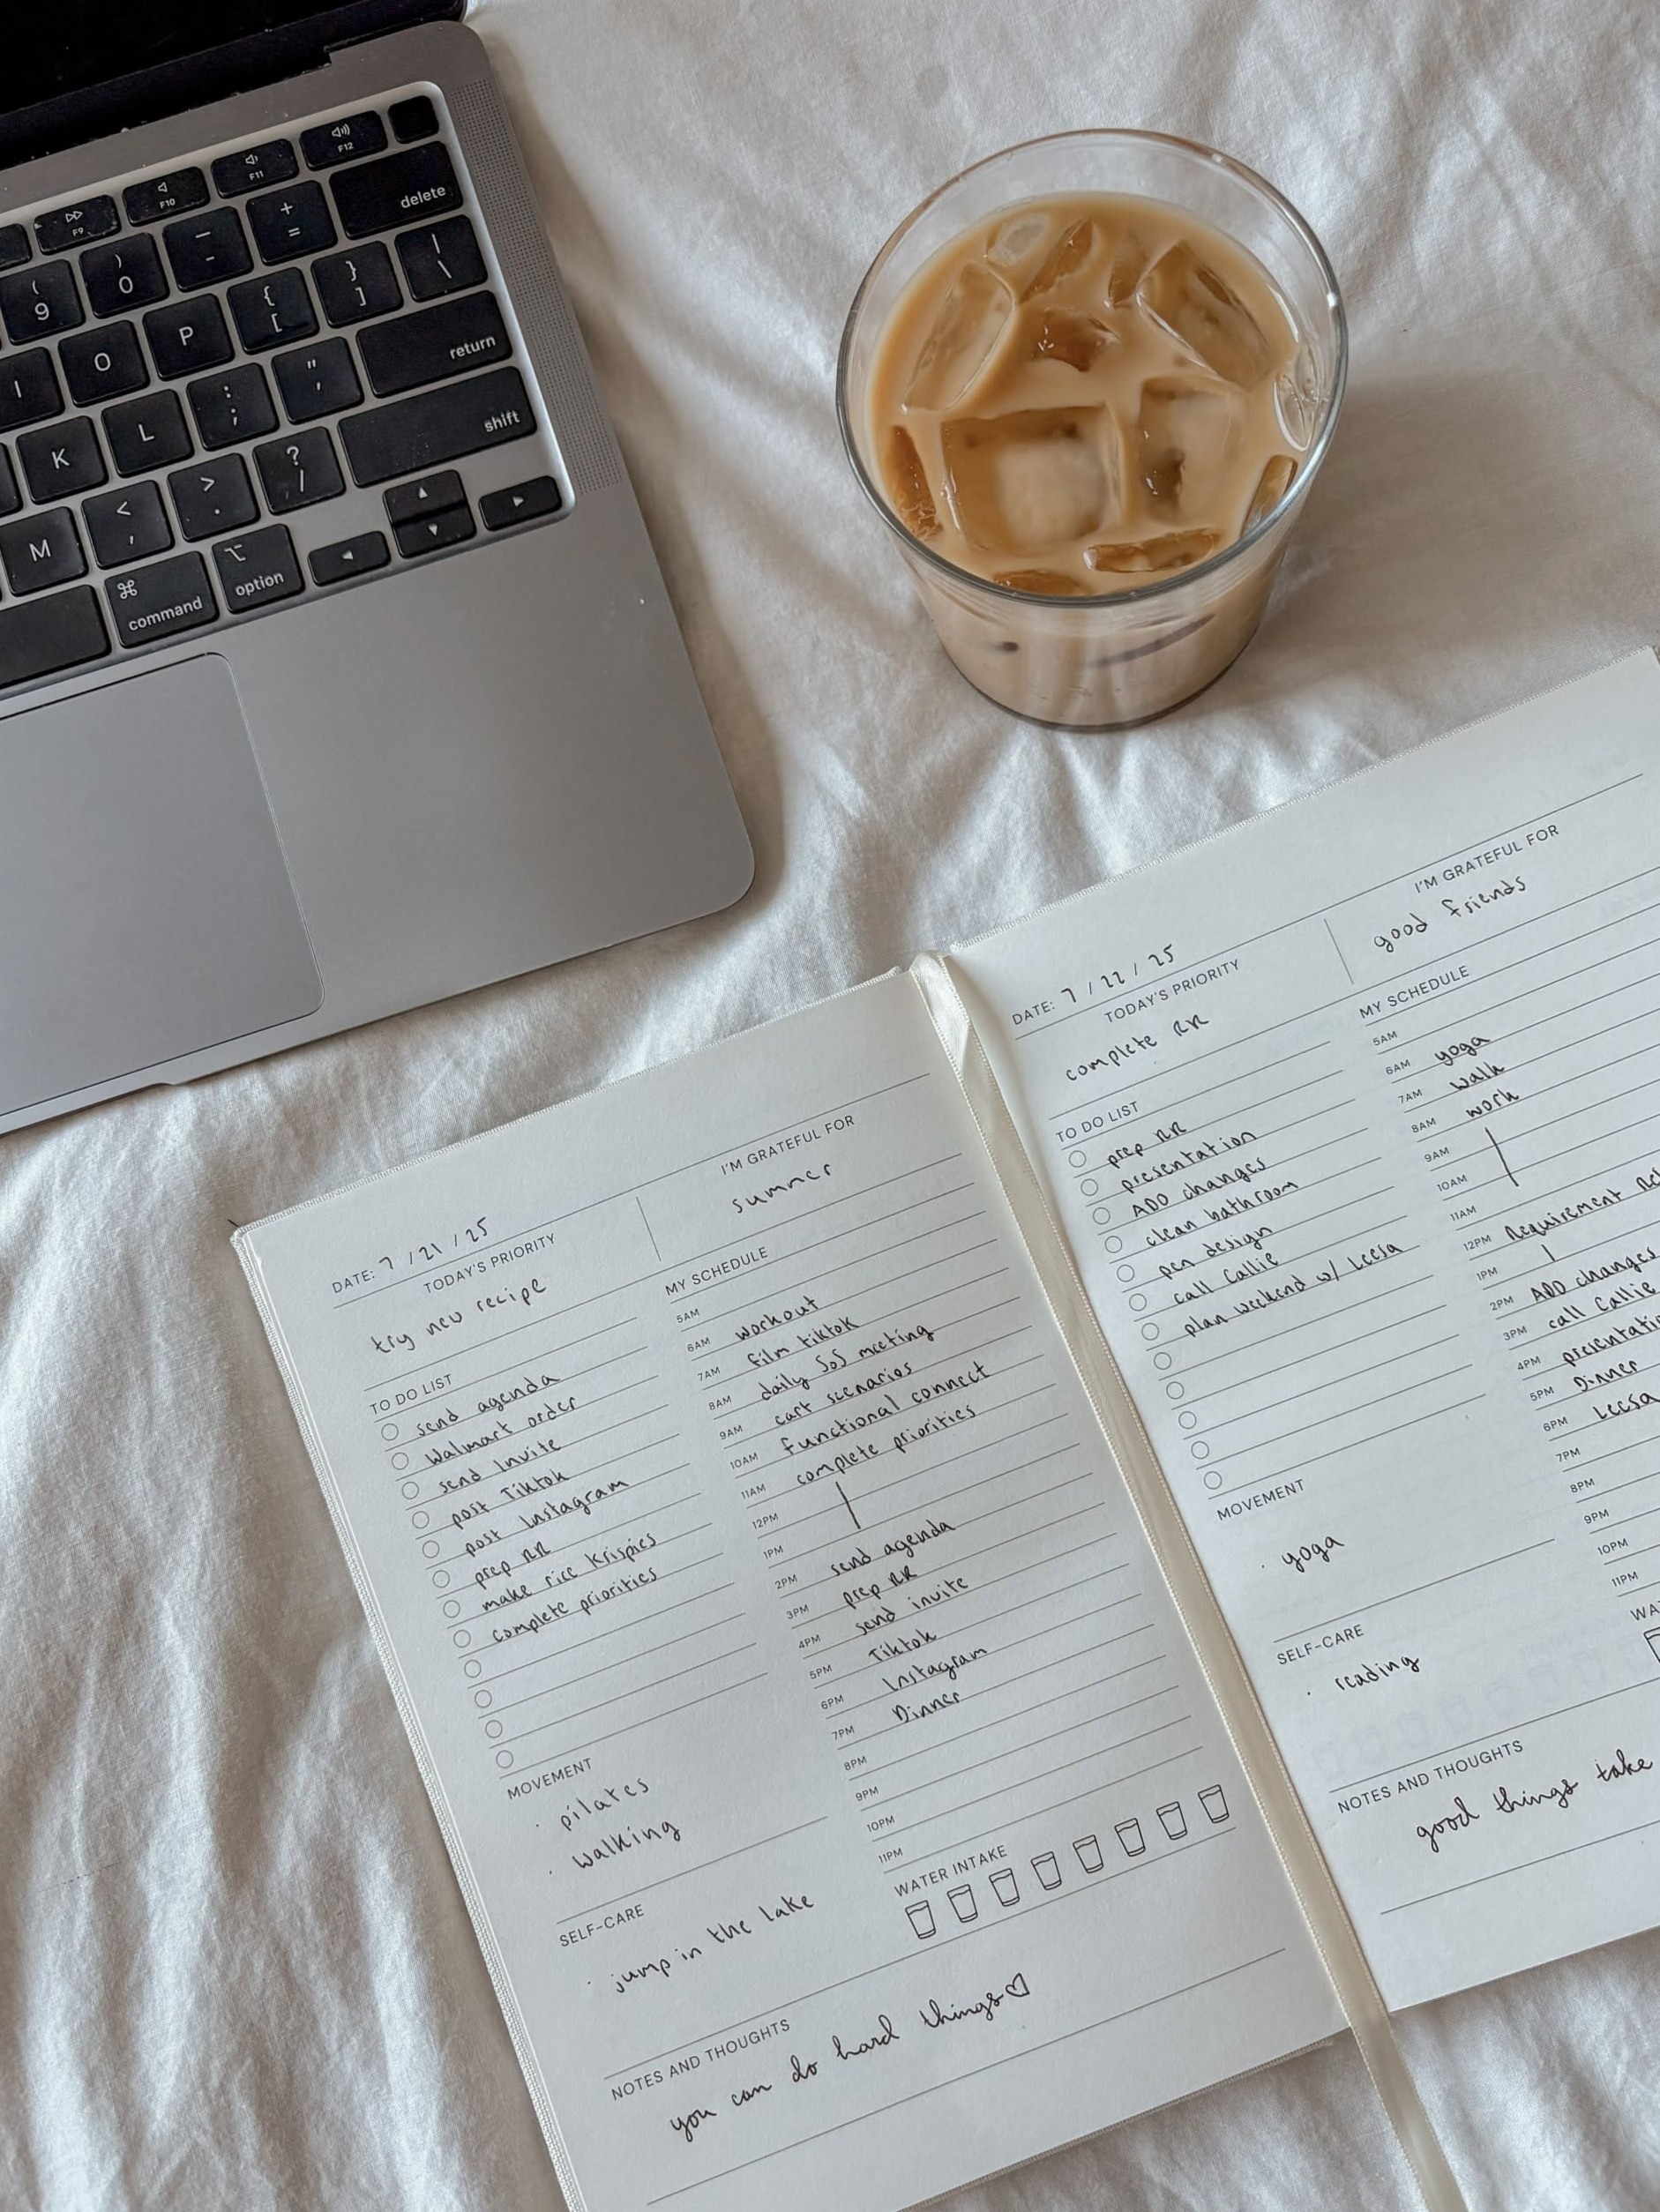 F9
F10
F11
F12
delete
( 9
) 0
— -
+ =
I
O
P
{ [
} ]
| \
return
K
L
: ;
" '
shift
M
< ,
> .
? /
⌘
command
⌥
option
DATE: 7 / 21 / 25
TODAY'S PRIORITY
try new recipe
I'M GRATEFUL FOR
summer
TO DO LIST
send agenda
Walmart order
send Invite
post Tiktok
post Instagram
prep RR
make rice krispies
complete priorities
MOVEMENT
· pilates
· walking
SELF-CARE
· jump in the lake
MY SCHEDULE
5AM
6AM workout
7AM film tiktok
8AM daily SoS meeting
9AM cart scenarios
10AM functional connect
11AM complete priorities
12PM
1PM
2PM send agenda
3PM prep RR
4PM send invite
5PM Tiktok
6PM Instagram
7PM Dinner
8PM
9PM
10PM
11PM
WATER INTAKE
NOTES AND THOUGHTS
you can do hard things♡
DATE: 7 / 22 / 25
TODAY'S PRIORITY
complete RR
I'M GRATEFUL FOR
good friends
TO DO LIST
prep RR
presentation
ADO changes
clean bathroom
pen design
call Callie
plan weekend w/ Leesa
MOVEMENT
· yoga
SELF-CARE
· reading
MY SCHEDULE
5AM
6AM yoga
7AM walk
8AM work
9AM
10AM
11AM
12PM Requirement
1PM
2PM ADO changes
3PM call Callie
4PM
5PM Dinner
6PM Leesa
7PM
8PM
9PM
10PM
11PM
NOTES AND THOUGHTS
good things take